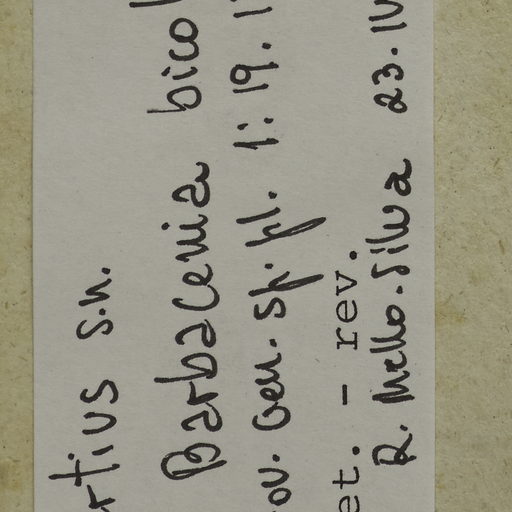 rtius s.n.
Barbacenia bicol
ov. Gen. sp. pl. 1: 19. 1
et. - rev.
R. Mello-Silva 23.IV